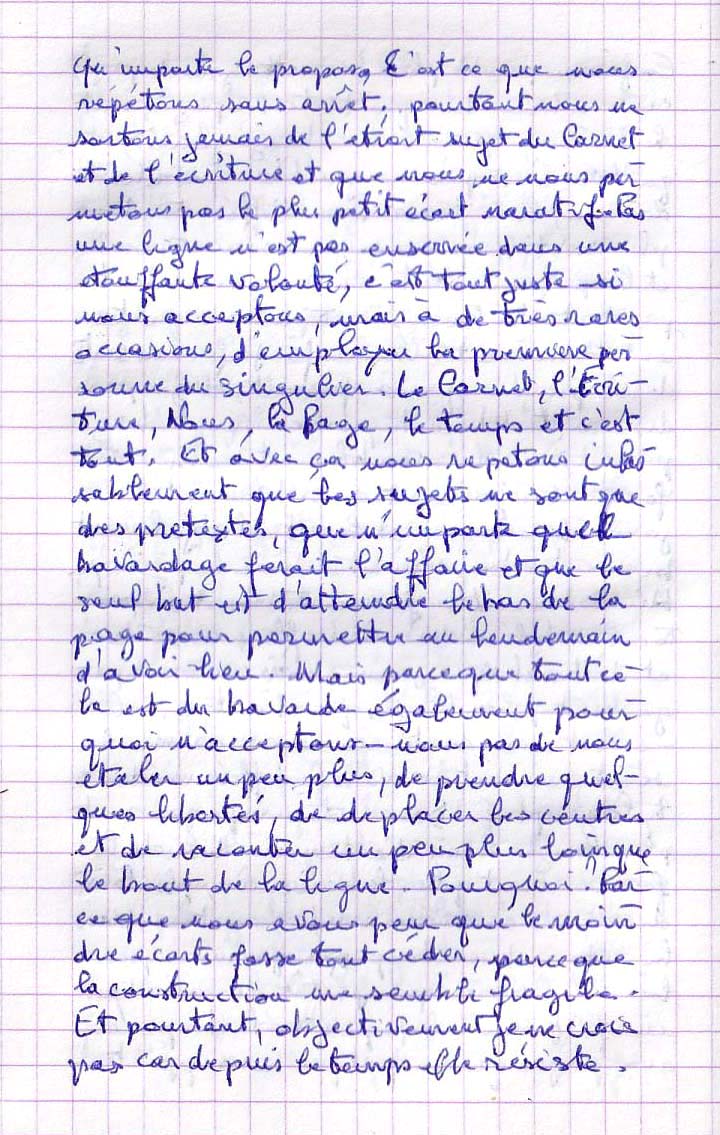 Qu'importe le propos, C'est ce que nous
répétons sans arrêt, pourtant nous ne
sortons jamais de l'étroit sujet du Carnet
et de l'écriture et que nous ne nous per
metons pas le plus petit écart narratif. Pas
une ligne n'est pas enserrée dans une
étouffante volonté, c'est tout juste si
nous acceptons, mais à de très rares
occasions, d'employer la première per
sonne du singulier. Le Carnet, l'Écri-
ture, Nous, la Page, le temps et c'est
tout. Et avec ça nous repetons inlas
sablement que les sujets ne sont que
des pretextes, que n'importe quel
bavardage ferait l'affaire et que le
seul but est d'atteindre le bas de la
page pour permettre au lendemain
d'avoir lieu. Mais parceque tout ce
la est du bavarde également pour
quoi n'acceptons-nous pas de nous
étaler un peu plus, de prendre quel-
ques libertés, de deplacer les centres
et de raconter un peu plus loin que
le bout de la ligne. Pourquoi? Par
ce que nous avons peur que le moin
dre écarts fasse tout céder, parce que
la construction me semble fragile.
Et pourtant, objectivement je ne crois
pas car depuis le temps elle résiste.